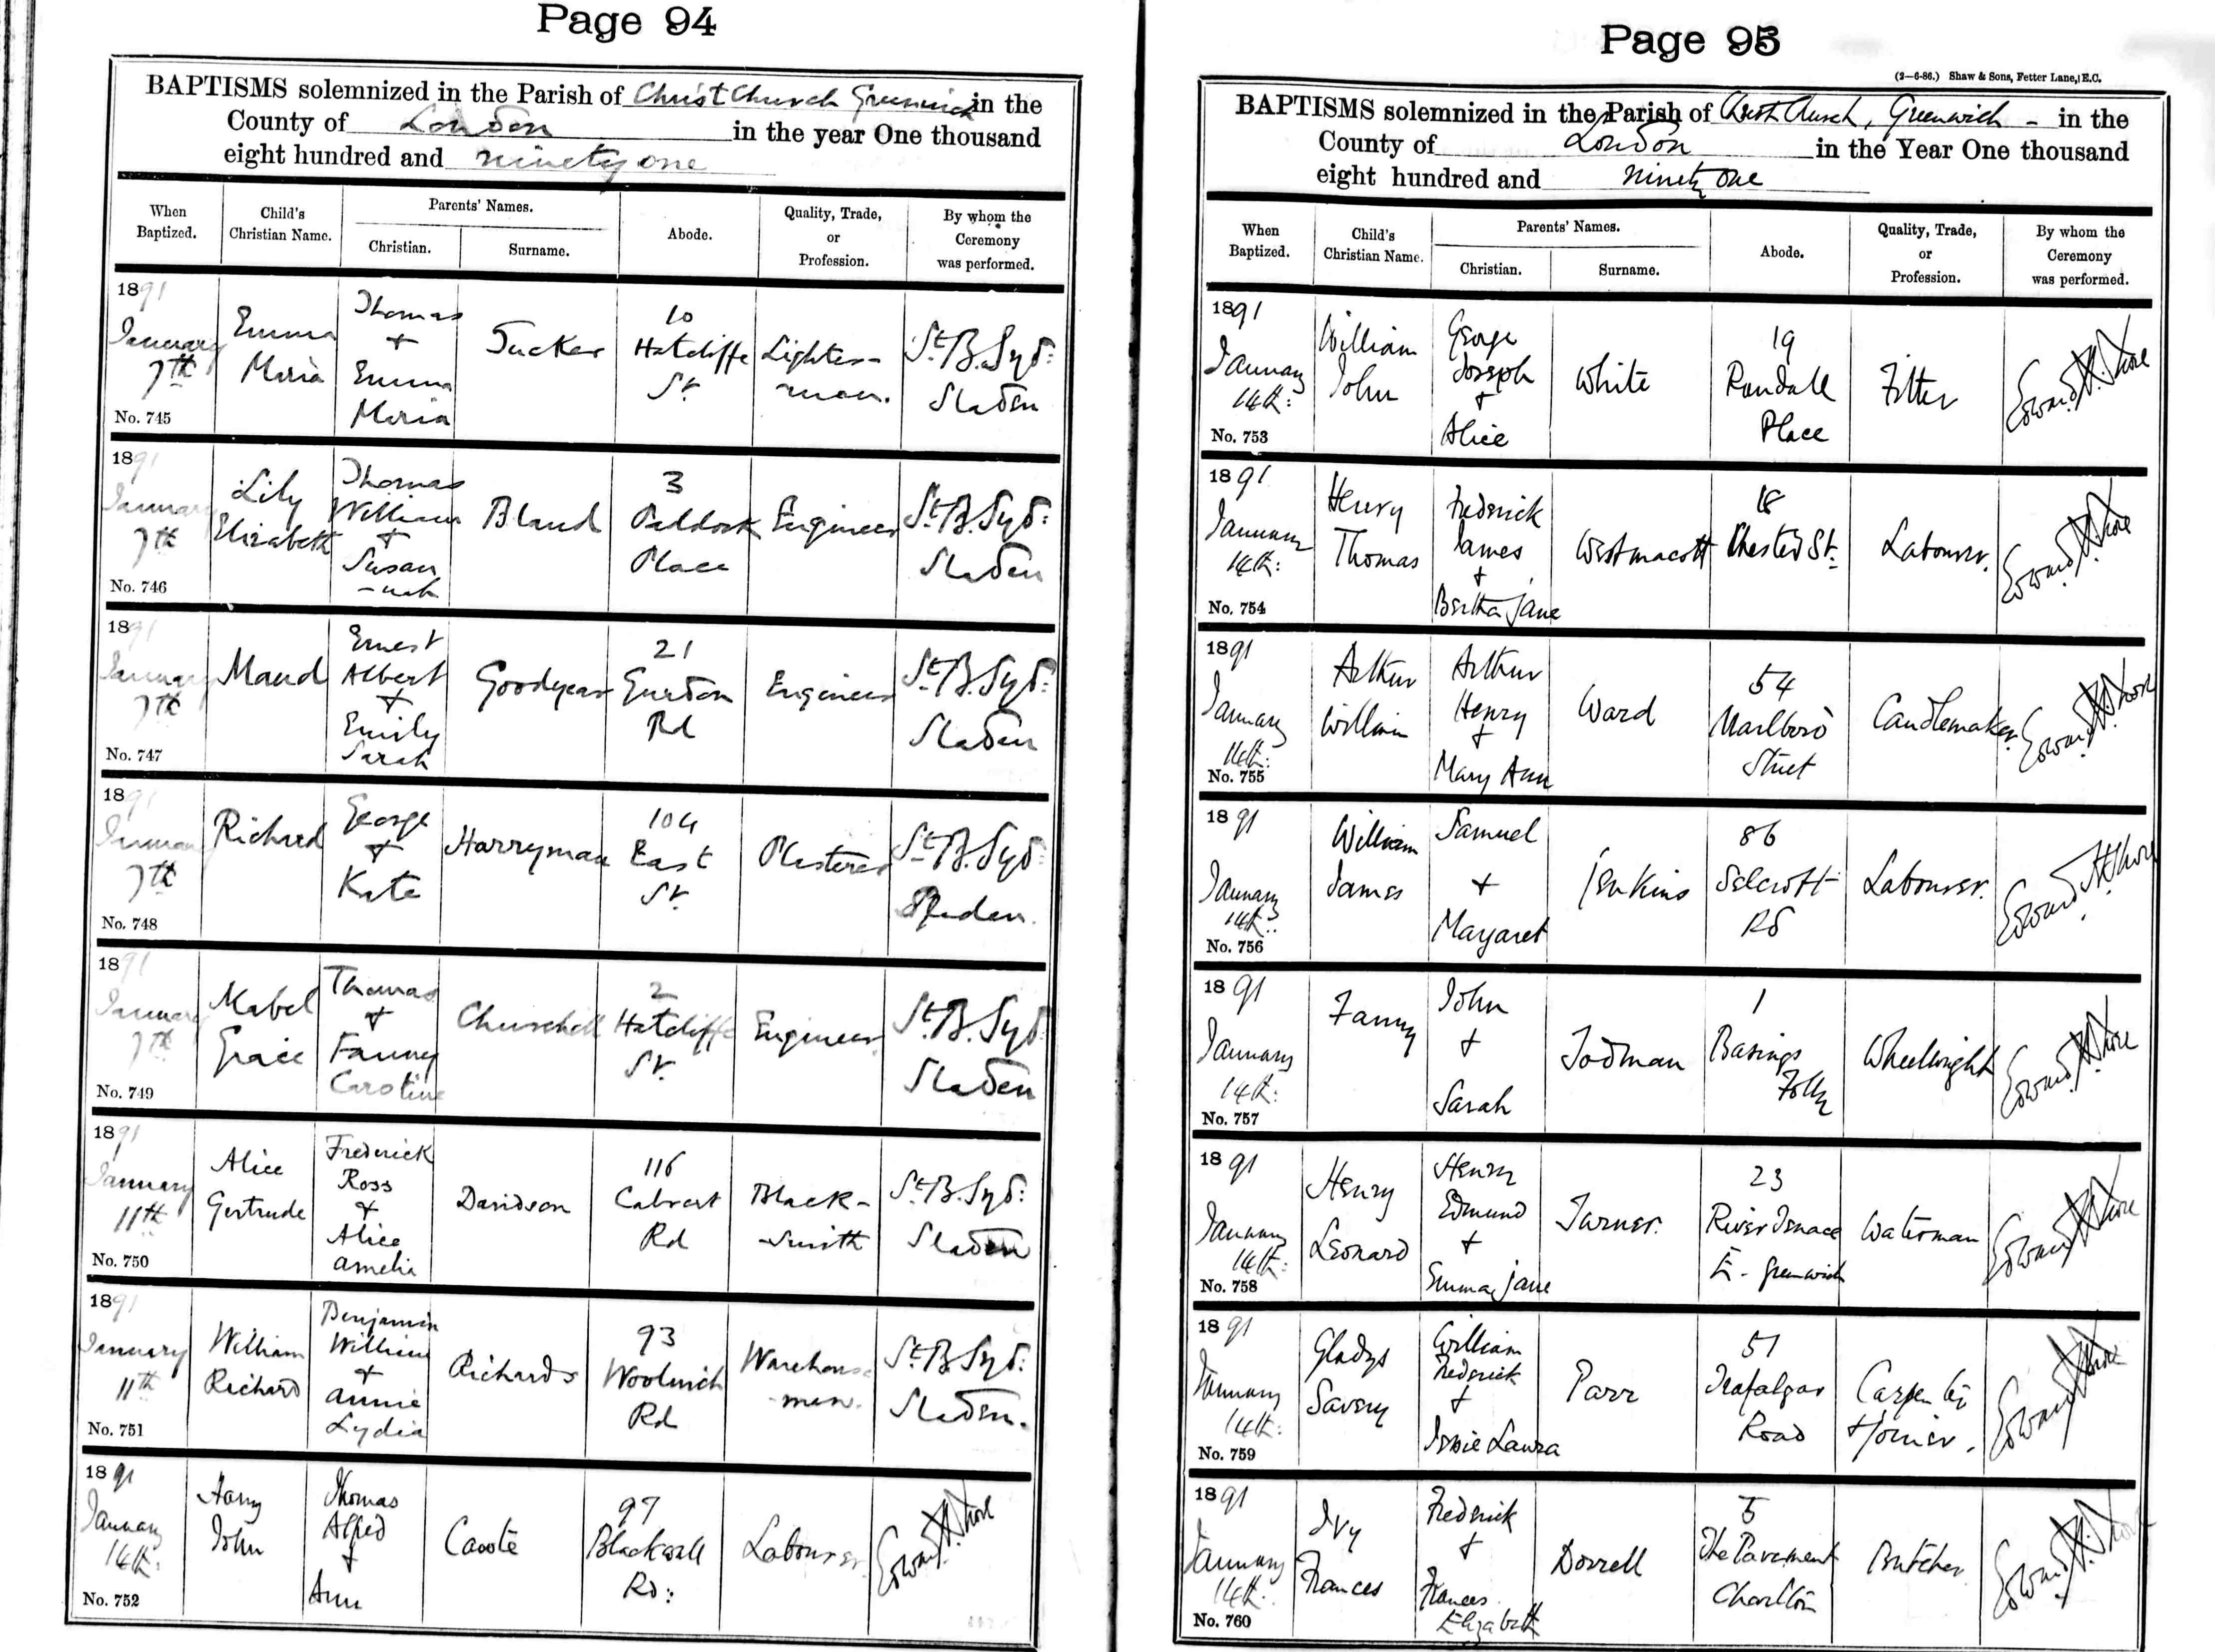 Page 94
BAPTISMS solemnized in the Parish of Christ Church Greenwich in the
County of London in the year One thousand
eight hundred and ninety one
When Baptized.
Child's Christian Name.
Parents' Names.
Christian.
Surname.
Abode.
Quality, Trade, or Profession.
By whom the Ceremony was performed.
1891
January
7th
No. 745
Emma
Maria
Thomas
+
Emma
Maria
Tucker
10
Hatcliffe
St.
Lighter-
man.
St. B. Syd:
Sladen
1891
January
7th
No. 746
Lily
Elizabeth
Thomas
William
+
Susan
-nah
Bland
3
Paddock
Place
Engineer
St. B. Syd:
Sladen
1891
January
7th
No. 747
Maud
Ernest
Albert
+
Emily
Sarah
Goodyear
21
Rd
Engineer
St. B. Syd:
Sladen
1891
January
7th
No. 748
Richard
George
+
Kate
Harryman
104
East
St.
Plasterer
St. B. Syd:
Sladen.
1891
January
7th
No. 749
Mabel
Grace
Thomas
+
Fanny
Caroline
Churchill
2
Hatcliffe
St.
Engineer
St. B. Syd:
Sladen
1891
January
11th
No. 750
Alice
Gertrude
Frederick
Ross
+
Alice
Amelia
Davidson
116
Calvert
Rd
Black-
-smith
St. B. Syd:
Sladen
1891
January
11th
No. 751
William
Richard
Benjamin
William
+
Annie
Lydia
Richards
93
Woolwich
Rd
Warehouse
-man.
St. B. Syd:
Sladen.
1891
January
14th:
No. 752
Harry
John
Thomas
Alfred
+
Ann
97
Blackwall
Rd:
Labourer.
Edward H. Shore
Page 95
(2—6-86.) Shaw & Sons, Fetter Lane, E.C.
BAPTISMS solemnized in the Parish of Christ Church, Greenwich - in the
County of London in the Year One thousand
eight hundred and ninety one
When Baptized.
Child's Christian Name.
Parents' Names.
Christian.
Surname.
Abode.
Quality, Trade, or Profession.
By whom the Ceremony was performed.
1891
January
14th:
No. 753
William
John
George
Joseph
+
Alice
White
19
Randall
Place
Fitter
Edward H. Shore
1891
January
14th:
No. 754
Henry
Thomas
Frederick
James
+
Bertha Jane
Westmacott
18
Chester St.
Labourer.
Edward H. Shore
1891
January
14th:
No. 755
Arthur
William
Arthur
Henry
+
Mary Ann
Ward
54
Marlboro
Street
Candlemaker.
Edward H. Shore
1891
January
14th:
No. 756
William
James
Samuel
+
Margaret
Jenkins
86
Selcroft
Rd
Labourer.
Edward H. Shore
1891
January
14th:
No. 757
Fanny
John
+
Sarah
Todman
1
Basings
Folly
Wheelwright
Edward H. Shore
1891
January
14th:
No. 758
Henry
Leonard
Henry
Edmund
+
Emma Jane
Turner.
23
River Terrace
E. Greenwich
Waterman
Edward H. Shore
1891
January
14th:
No. 759
Gladys
Savery
William
Frederick
+
Laura
Parr
51
Trafalgar
Road
Carpenter
+ Joiner.
Edward H. Shore
1891
January
14th:
No. 760
Ivy
Frances
Frederick
+
Frances
Elizabeth
Dorrell
5
The Pavement
Charlton
Butcher
Edward H. Shore